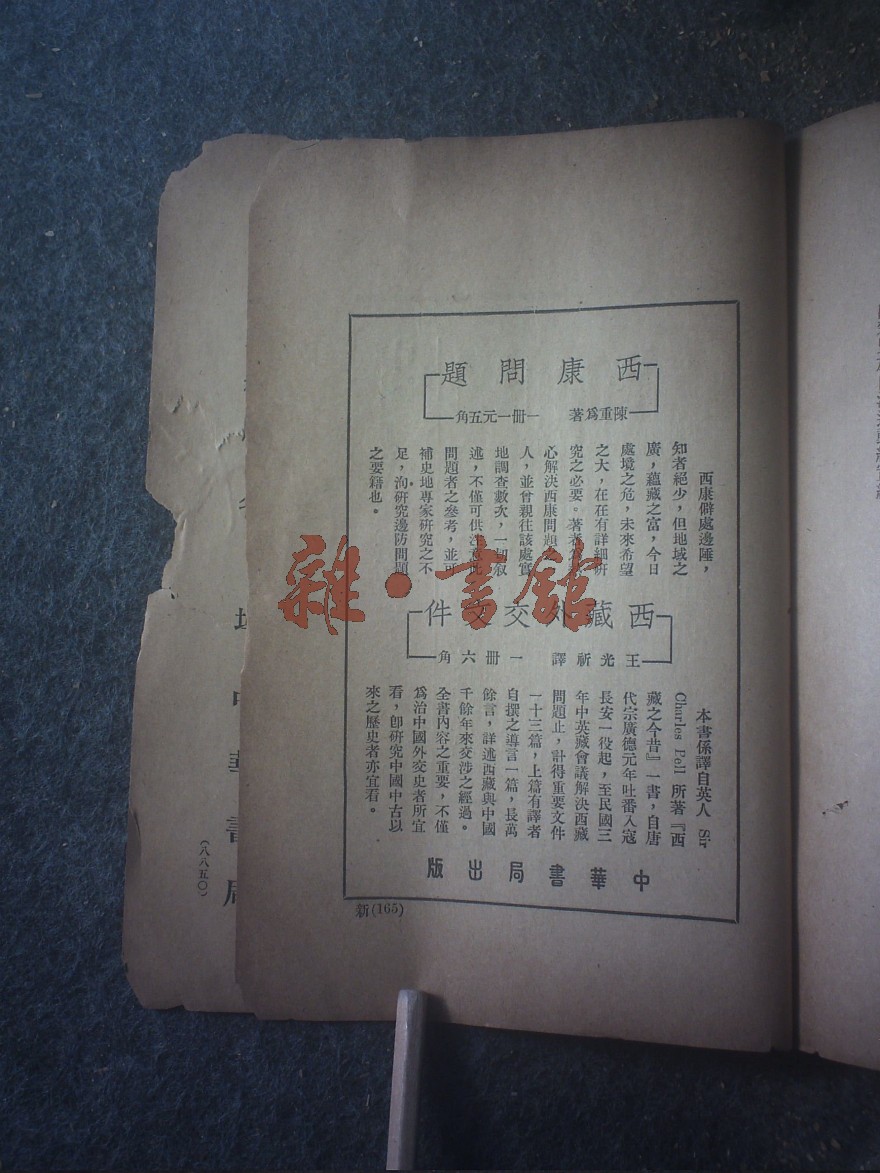 西康問題
陳重爲著 一冊一元五角
西康僻處邊陲，
知者絕少，但地域之
廣，蘊藏之富，今日
處境之危，未來希望
之大，在在有詳細研
究之必要。著者
心解決西康問題之
人，並曾親往該處實
地調查數次，一切敘
述，不僅可供注意此
問題者之參考，並可
補史地專家研究之不
足，洵研究邊防問題
之要籍也。
西藏外交文件
王光祈譯 一冊六角
本書係譯自英人 Sir
Charles Pell 所著『西
藏之今昔』一書，自唐
代宗廣德元年吐番入寇
長安一役起，至民國三
年中英藏會議解決西藏
問題止，計得重要文件
一十三篇，上篇有譯者
自撰之導言一篇，長萬
餘言，詳述西藏與中國
千餘年來交涉之經過。
全書內容之重要，不僅
爲治中國外交史者所宜
看，卽研究中國中古以
來之歷史者亦宜看。
中華書局出版
新(165)
中華書局
(八八五〇)
雜·書館